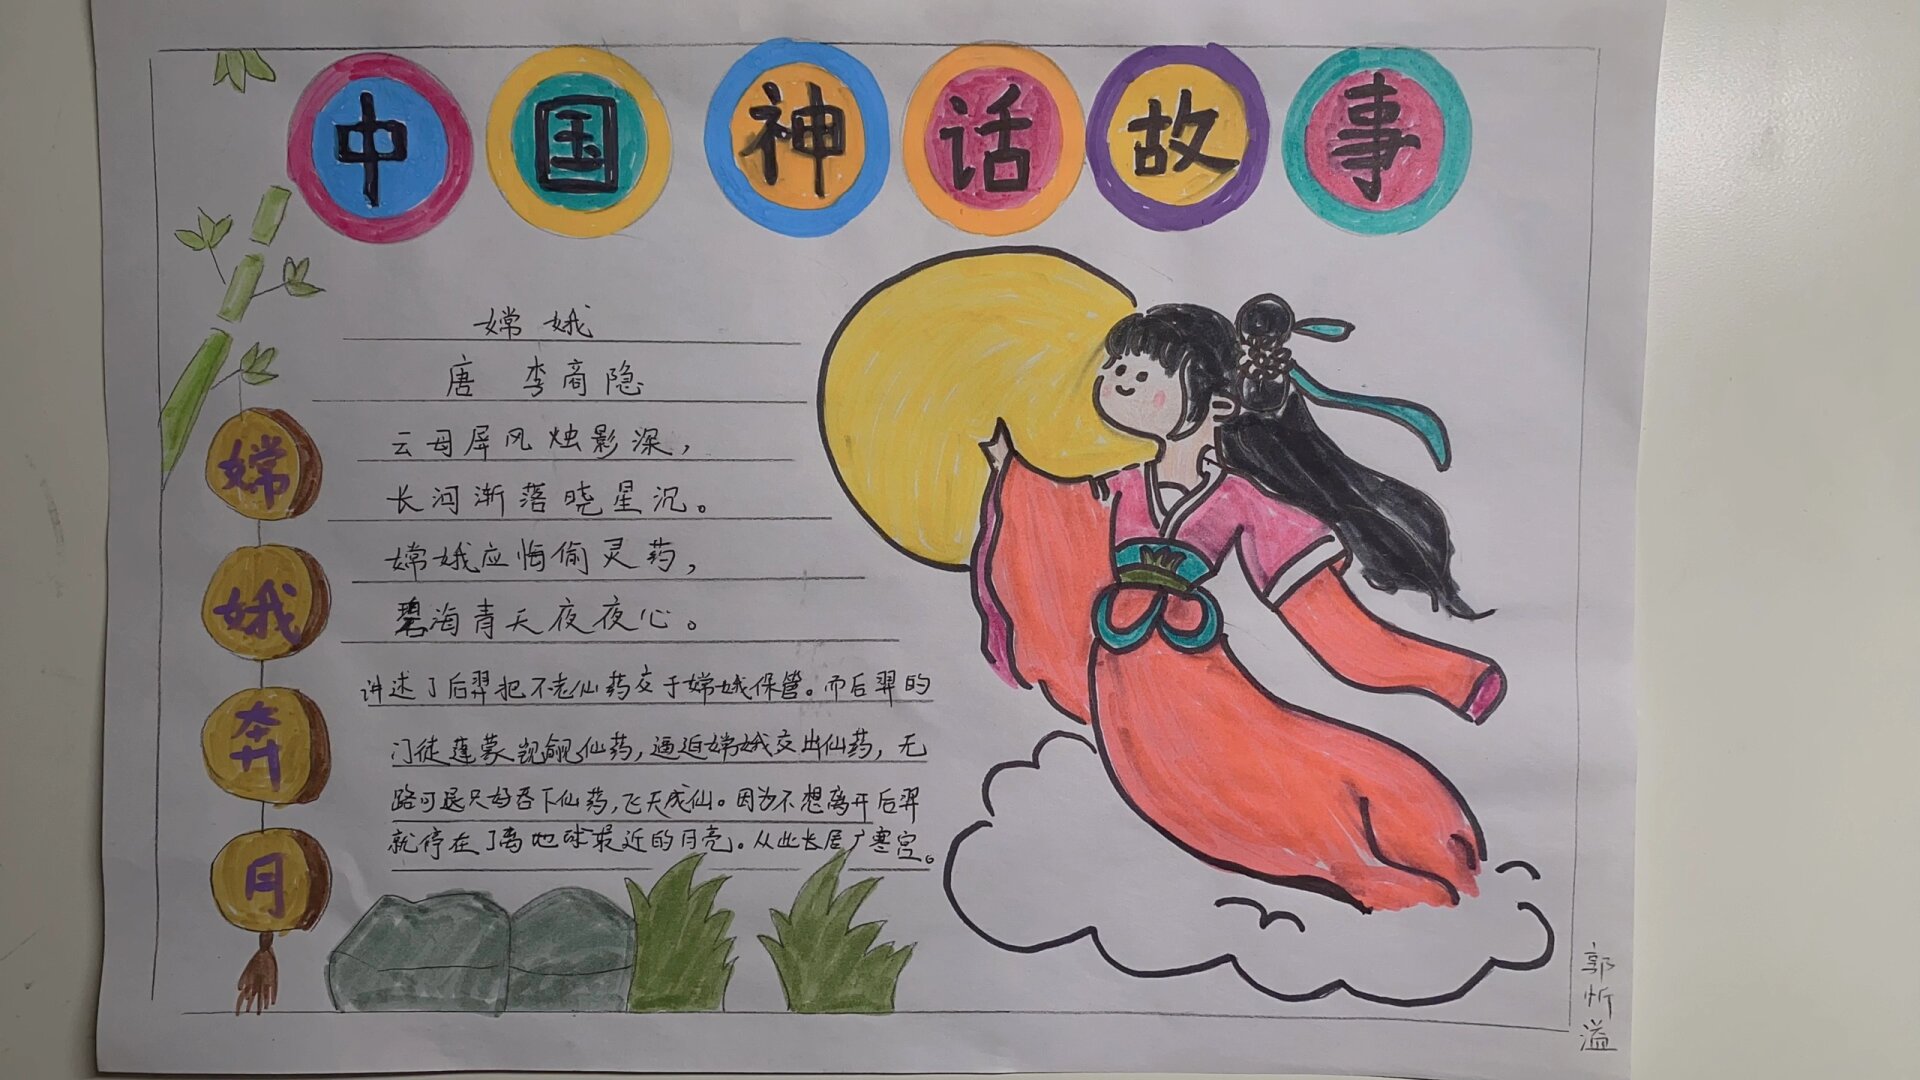 中国神话故事
嫦娥
唐 李商隐
云母屏风烛影深，
长河渐落晓星沉。
嫦娥应悔偷灵药，
碧海青天夜夜心。
讲述了后羿把不老仙药交于嫦娥保管。而后羿的
门徒蓬蒙觊觎仙药，逼迫嫦娥交出仙药，无
路可退只好吞下仙药，飞天成仙。因为不想离开后羿
就停在了离地球最近的月亮。从此长居广寒宫。
嫦娥奔月
郭忻溢